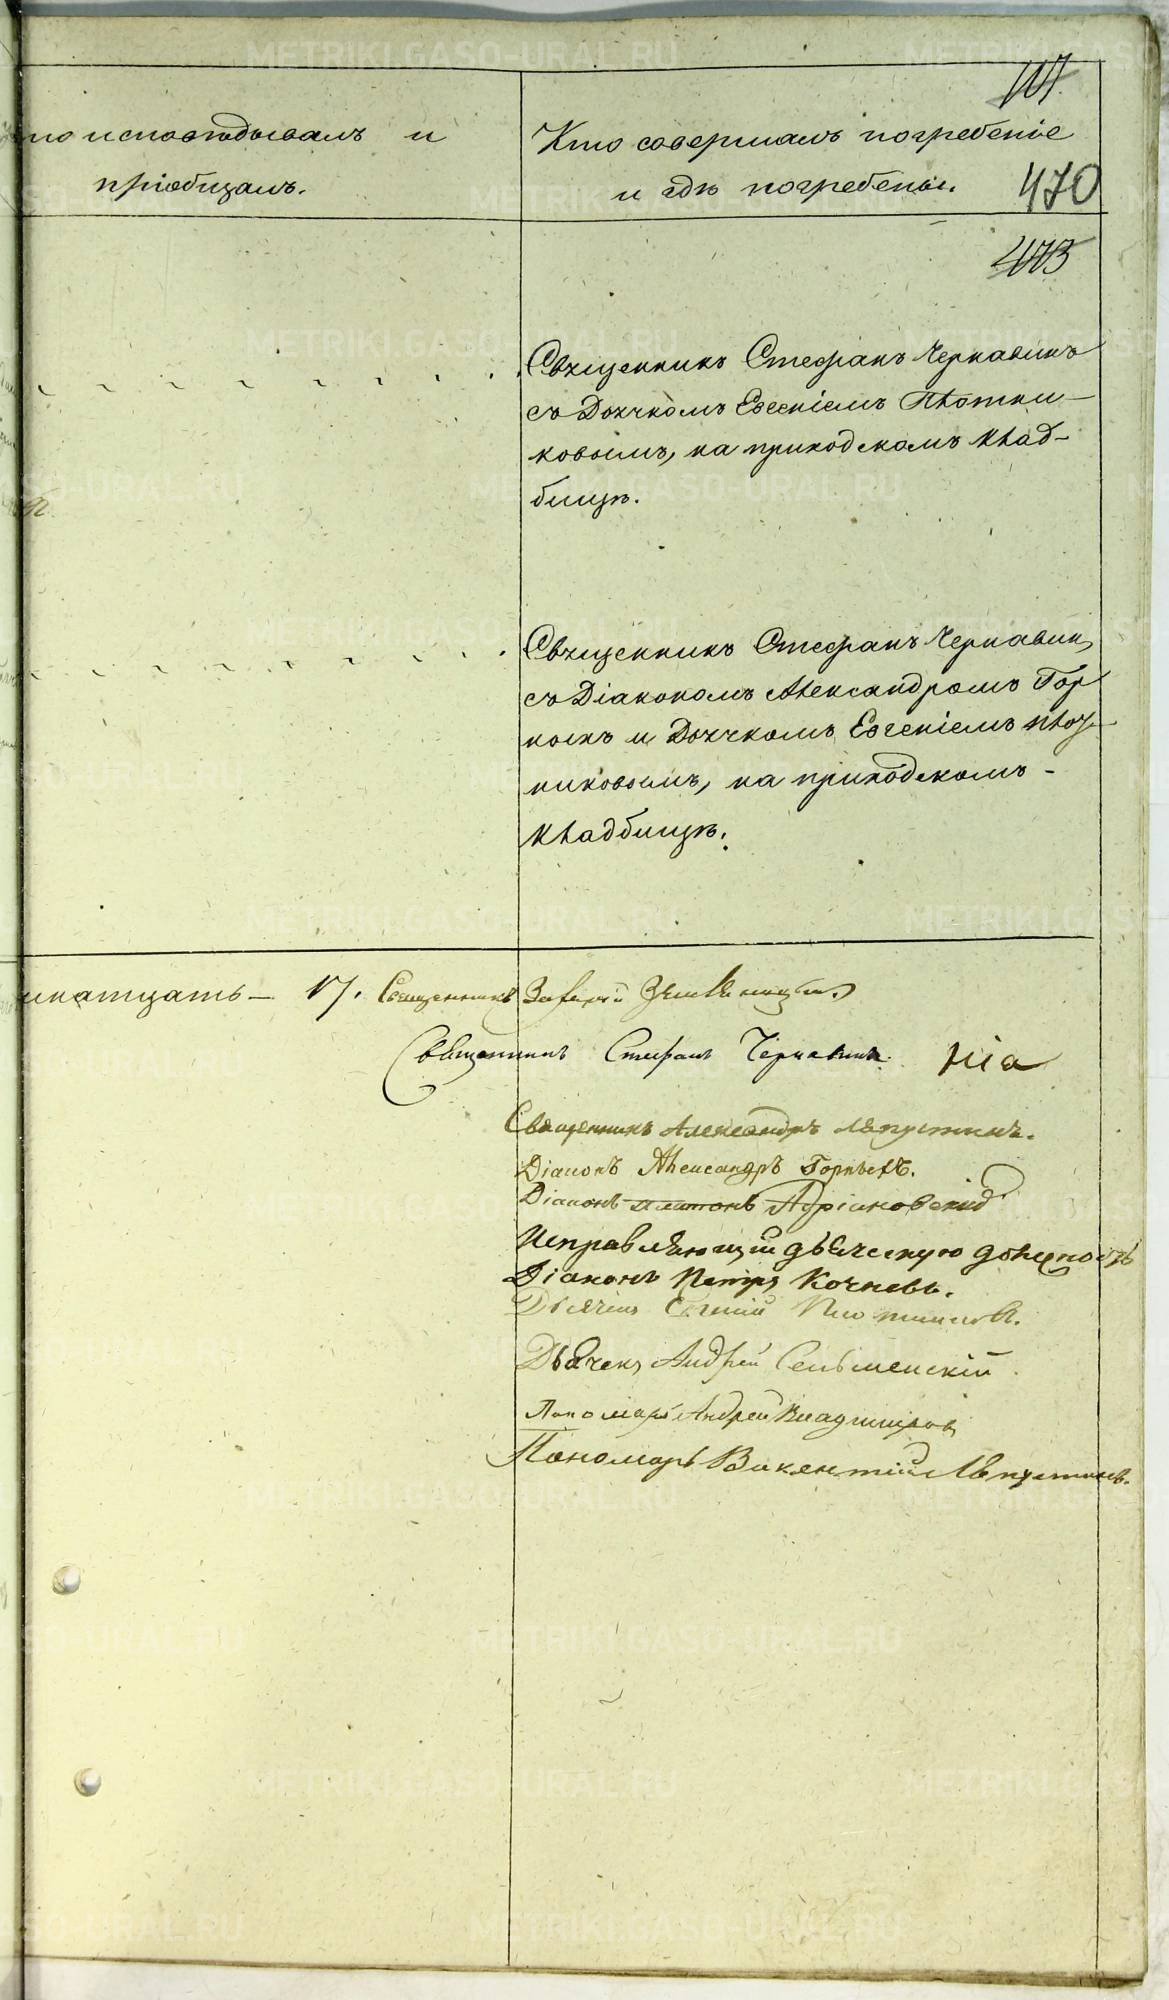 107
по исповѣдывалъ и
пріобщалъ.
Кто совершалъ погребеніе
и гдѣ погребены.
470
473
Священникъ Стефанъ Чернавинъ
съ Дьячкомъ Евгеніемъ Плотни-
ковымъ, на приходскомъ клад-
бищѣ.
Священникъ Стефанъ Чернавин,
съ Діакономъ Александромъ Гор
ныхъ и Дьячкомъ Евгеніемъ Плот-
никовымъ, на приходскомъ -
кладбищѣ.
надцать — 17. Священникъ
Священникъ Стефанъ Чернавинъ. нія
Священникъ Александръ Ляпустинъ.
Діаконъ Александръ Горныхъ.
Діаконъ Платонъ Адріановскій
Исправляющій дьяческую должность
Діаконъ Петръ Кочневъ.
Дьячекъ Евгеній Плотниковъ.
Дьячекъ Андрей Сельменскій
Пономарь Андрей Владиміровъ
Пономарь Викентій Ляпустинъ.
METRIKI.GASO-URAL.RU